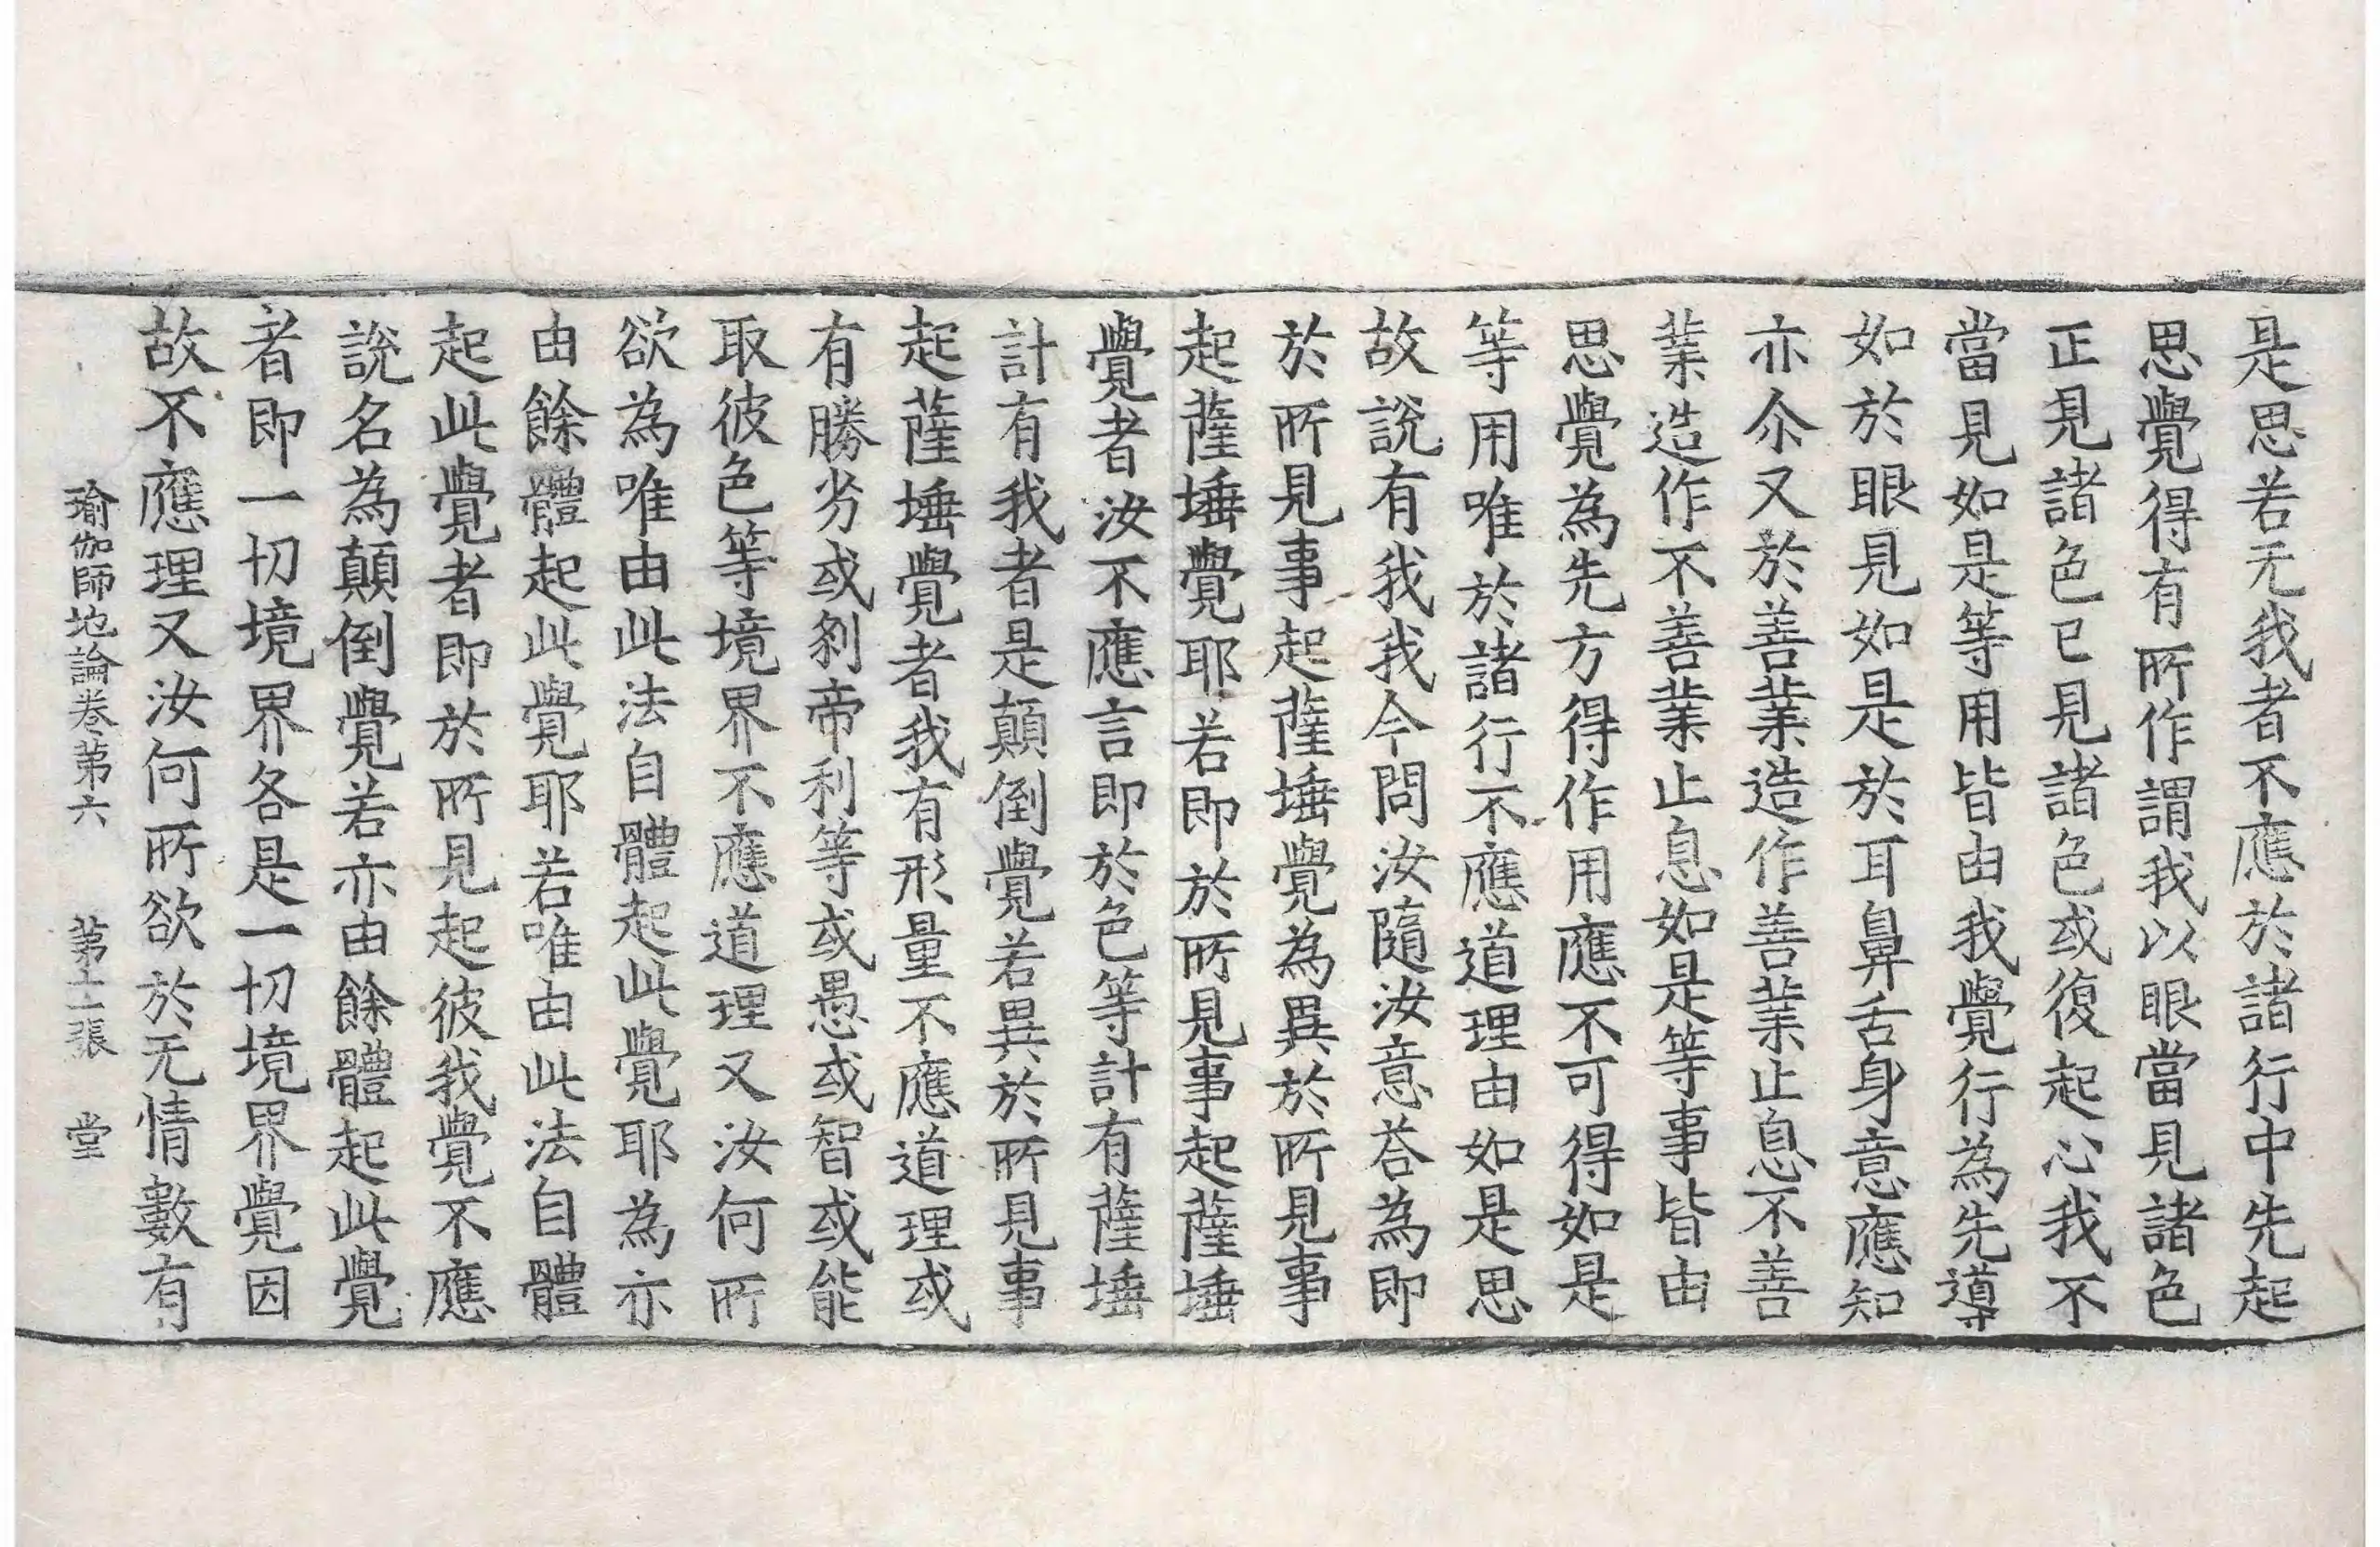 是思若无我者不應於諸行中先起
思覺得有所作謂我以眼當見諸色
正見諸色已見諸色或復起心我不
當見如是等用皆由我覺行為先導
如於眼見如是於耳鼻舌身意應知
亦尒又於善業造作善業止息不善
業造作不善業止息如是等事皆由
思覺為先方得作用應不可得如是
等用唯於諸行不應道理由如是思
故說有我我今問汝隨汝意荅為即
於所見事起薩埵覺為異於所見事
起薩埵覺耶若即於所見事起薩埵
覺者汝不應言即於色等計有薩埵
計有我者是顛倒覺若異於所見事
起薩埵覺者我有形量不應道理或
有勝劣或剎帝利等或愚或智或能
取彼色等境界不應道理又汝何所
欲為唯由此法自體起此覺耶為亦
由餘體起此覺耶若唯由此法自體
起此覺者即於所見起彼我覺不應
說名為顛倒覺若亦由餘體起此覺
者即一切境界各是一切境界覺因
故不應理又汝何所欲於无情數有
瑜伽師地論卷第六 第十二張 堂